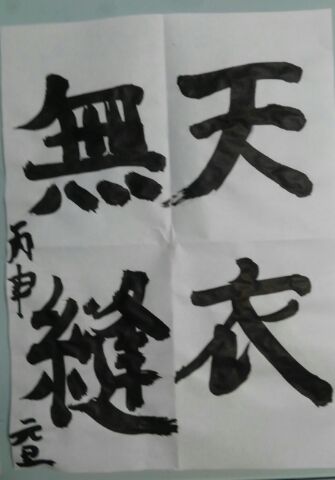 天衣
無縫
丙申
元旦